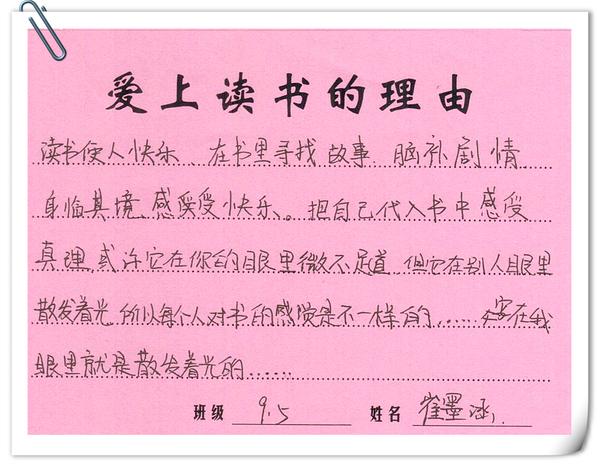 爱上读书的理由
读书使人快乐、在书里寻找故事 脑补剧情、
身临其境、感受快乐、。把自己代入书中感受
真理,或许它在你的眼里微不足道,但它在别人眼里
散发着光 所以每个人对书的感觉是不一样的……在我
眼里就是散发着光的……
班级 9.5 姓名 崔墨涵